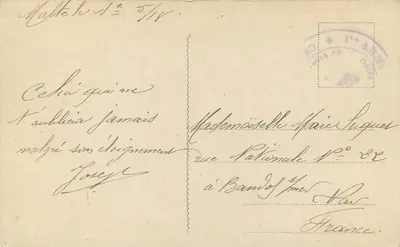 Malte le N° 5/18
Celui qui ne
N'oubliera jamais
malgré son éloignement
Josep
Mademoiselle Marie Huguet
rue Nationale N° 22
à Bandol s/mer
Var
France